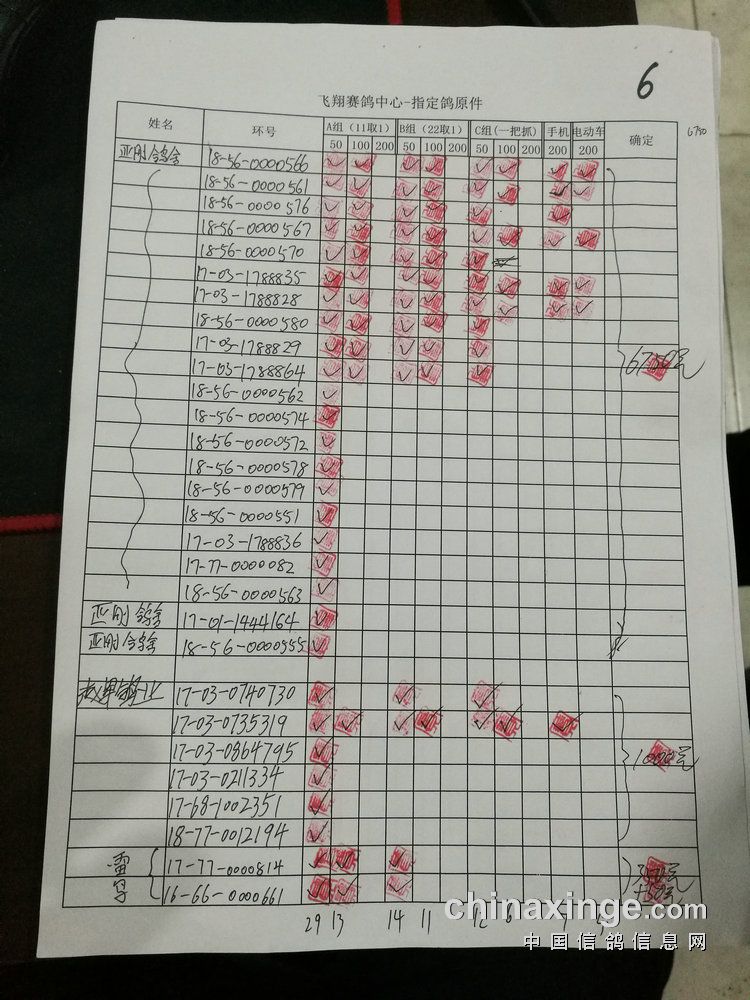 6
飞翔赛鸽中心-指定鸽原件
6750
姓名 环号 A组（11取1） B组（22取1） C组(一把抓) 手机 电动车 确定
50 100 200 50 100 200 50 100 200 200 200
亚刚鸽舍 18-56-0000566 ✓ ✓ ✓ ✓ ✓ ✓ ✓ ✓
18-56-0000561 ✓ ✓ ✓ ✓ ✓ ✓ ✓ ✓
18-56-0000576 ✓ ✓ ✓ ✓ ✓ ✓
18-56-0000567 ✓ ✓ ✓ ✓ ✓ ✓ ✓ ✓
18-56-0000570 ✓ ✓ ✓ ✓ ✓
17-03-1788835 ✓ ✓ ✓ ✓ ✓ ✓ ✓ ✓
17-03-1788828 ✓ ✓ ✓ ✓ ✓ ✓ ✓ ✓
18-56-0000580 ✓ ✓ ✓ ✓ ✓
17-03-1788829 ✓ ✓ ✓ ✓ ✓
17-03-1788864 ✓ ✓ ✓ ✓ ✓ 6750元
18-56-0000562 ✓
18-56-0000574 ✓
18-56-0000572 ✓
18-56-0000578 ✓
18-56-0000579 ✓
18-56-0000551 ✓
17-03-1788836 ✓
17-77-0000082 ✓
18-56-0000563 ✓
亚刚鸽舍 17-01-1444164 ✓
亚刚鸽舍 18-56-0000555 ✓
17-03-0740730 ✓ ✓ ✓
17-03-0735319 ✓ ✓ ✓ ✓ ✓ ✓ ✓
17-03-0864795 ✓ 1000元
17-03-0211334 ✓
17-68-1002351 ✓
18-77-0012194 ✓
17-77-0000814 ✓ ✓ ✓
16-66-0000661 ✓ ✓ ✓
29 13 14 11 12
chinaxinge.com
中国信鸽信息网